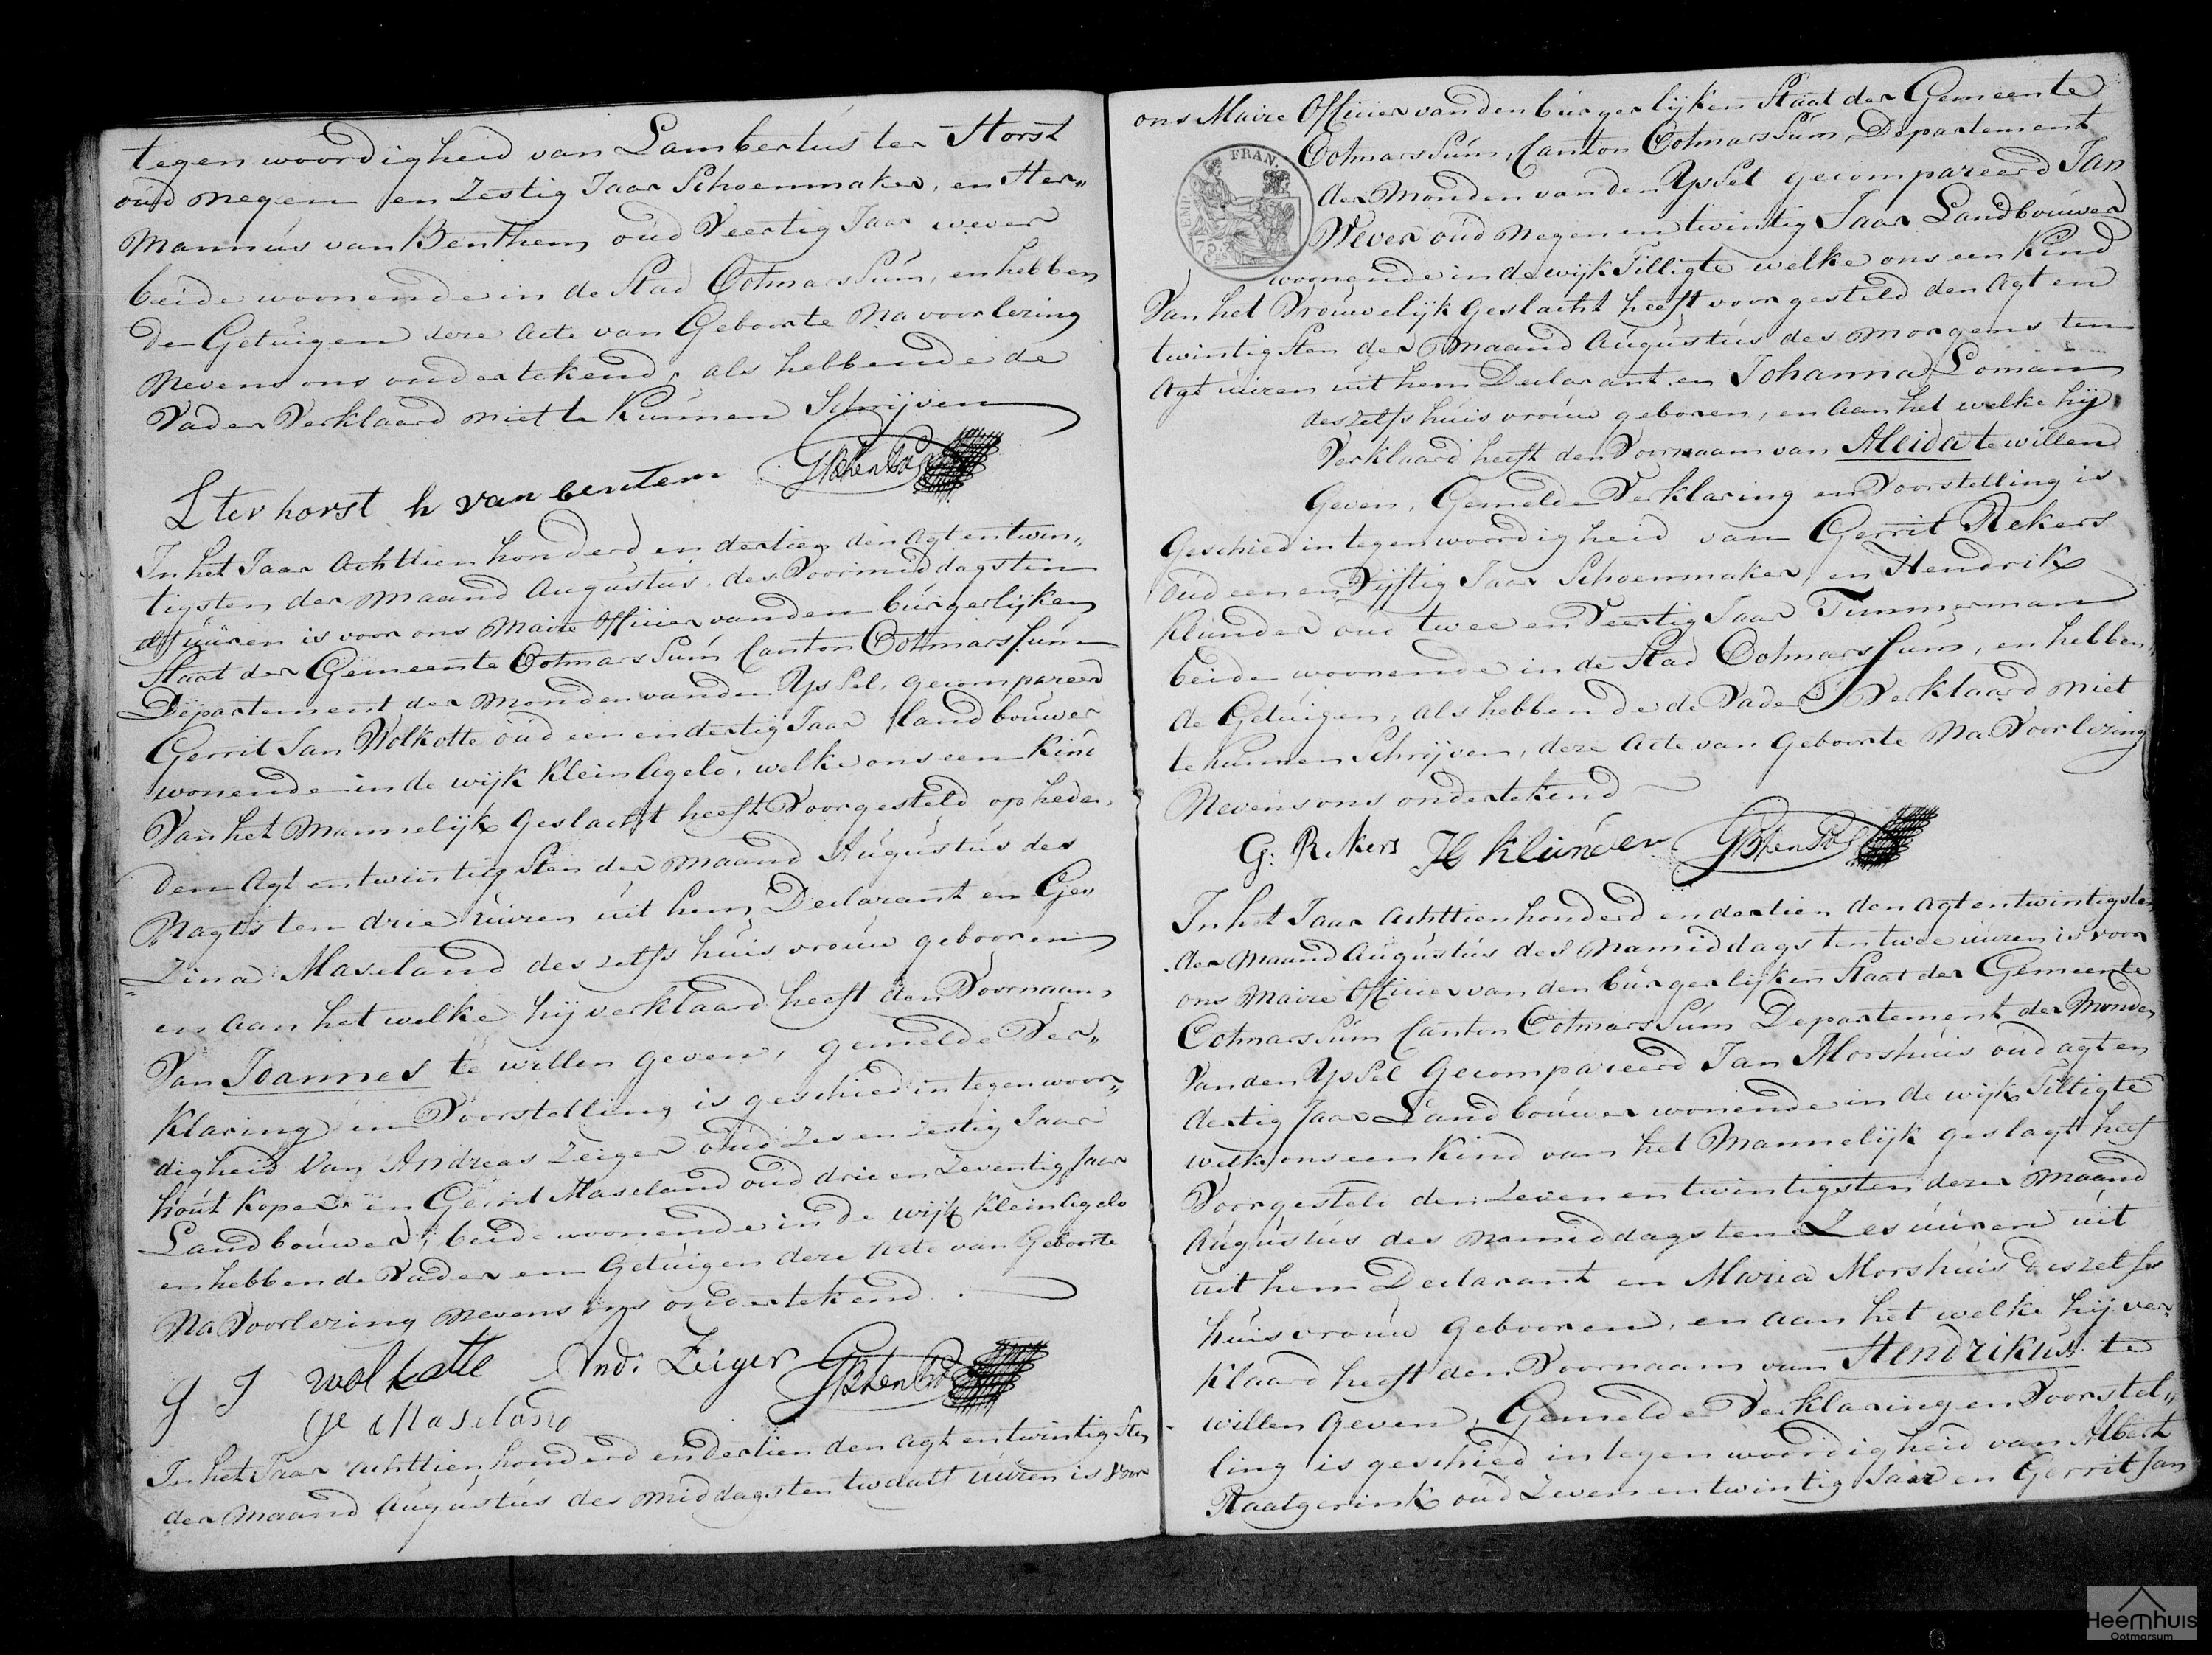 tegenwoordigheid van Lambertus ter Horst
oud negen en Zestig Jaar Schoenmaker, en Her„
Mannus van Benthem oud Veertig Jaar wever
beide woonende in de Stad Ootmarssum, en hebben
de Getuigen deze Acte van Geboorte Na voorlezing
Nevens ons ondertekend, als hebbende de
Vader Verklaard niet te Kunnen Schrijven
L ter horst h van bentem
In het Jaar Achttien honderd en dertien den Agt entwin„
tigsten der Maand Augustus des Voormiddags ten
elf uuren is voor ons Maire Officier van den burgerlijken
Staat der Gemeente Ootmarssum Canton Ootmarssum
Departement der Monden van den Yssel, gecompareerd
Gerrit Jan Wolkotte oud een en dertig Jaar Landbouwer
wonende in de wijk Klein Agelo, welke ons een Kind
Van het Mannelijk Geslacht heeft Voorgesteld op heden
den Agt entwintigsten der Maand Augustus des
Nagts ten drie uuren uit hem Declarant en Ge„
Zina Maseland deszelfs huisvrouw gebooren
en aan het welke hij verklaard heeft den Voornaam
Van Joannes te willen geven, gemelde Ver„
Klaring en Voorstelling is geschied in tegenwoor„
digheid Van Andreas Zeiger oud Zes en Zestig Jaar
hout Koper en Gerrit Maseland oud drie en Zeventig Jaar
Landbouwer, beide woonende in de wijk Klein Agelo
en hebben de Vader en Getuigen deze Acte van Geboorte
Na Voorlezing Nevens ons ondertekend.
G J wolkotte And. Zeiger
Ge Maseland
In het Jaar Achttien honderd en dertien den Agt entwintigsten
der Maand Augustus des Middags ten twaalf uuren is voor
ons Maire Officier van den burgerlijken Staat der Gemeente
EMP. FRAN.
75 Ces
Ootmarssum, Canton Ootmarssum, Departement
der Monden van den Yssel gecompareerd Jan
Wever oud Negen en twintig Jaar Landbouwer
woonende in de wijk Tilligte welke ons een Kind
Van het Vrouwelijk Geslacht heeft voorgesteld den Agt en
twintigsten der Maand Augustus des Morgens ten
Agt uuren uit hem Declarant en Johanna Loman
deszelfs huisvrouw geboren, en aan het welke hij
Verklaard heeft den Voornaam van Aleida te willen
Geven, Gemelde Verklaring en Voorstelling is
Geschied in tegenwoordigheid van Gerrit Rekers
oud een en Vijftig Jaar Schoenmaker, en Hendrik
Klunder oud twee en Veertig Jaar Timmerman
beide woonende in de Stad Ootmarssum, en hebben
de Getuigen, als hebbende de Vader Verklaard Niet
te kunnen Schrijven, deze Acte van Geboorte Na Voorlezing
Nevens ons ondertekend
G: Rekers H klunder
In het Jaar Achttien honderd en dertien den Agt entwintigsten
der Maand Augustus des Namiddags ten twee uuren is voor
ons Maire Officier van den burgerlijken Staat der Gemeente
Ootmarssum Canton Ootmarssum Departement der Monden
Van den Yssel Gecompareerd Jan Morshuis oud agt en
dertig Jaar Landbouwer wonende in de wijk Tilligte
welke ons een Kind van het Mannelijk geslagt heef
Voorgesteld den Zeven en twintigsten dezer Maand
Augustus des Namiddags ten Zes uuren uit
uit hem Declarant en Maria Morshuis deszelfs
huisvrouw Gebooren, en aan het welke hij ver„
Klaard heeft den Voornaam van Hendrikus te
willen Geven, Gemelde Verklaring en Voorstel„
ling is geschied in tegenwoordigheid van Albert
Raatgerink oud Zeven en twintig Jaar en Gerrit Jan
Heemhuis
Ootmarsum